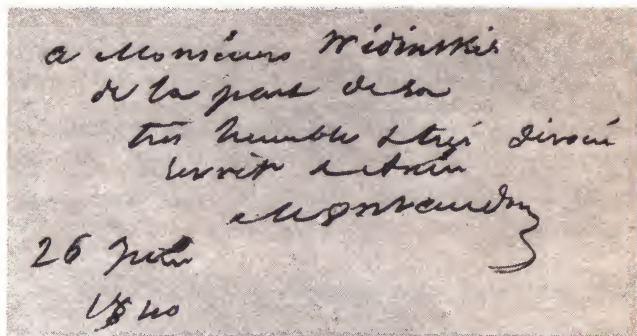 a Monsieur Widinski
de la part de son
très humble & très dévoué
serviteur & Ami
26
1840